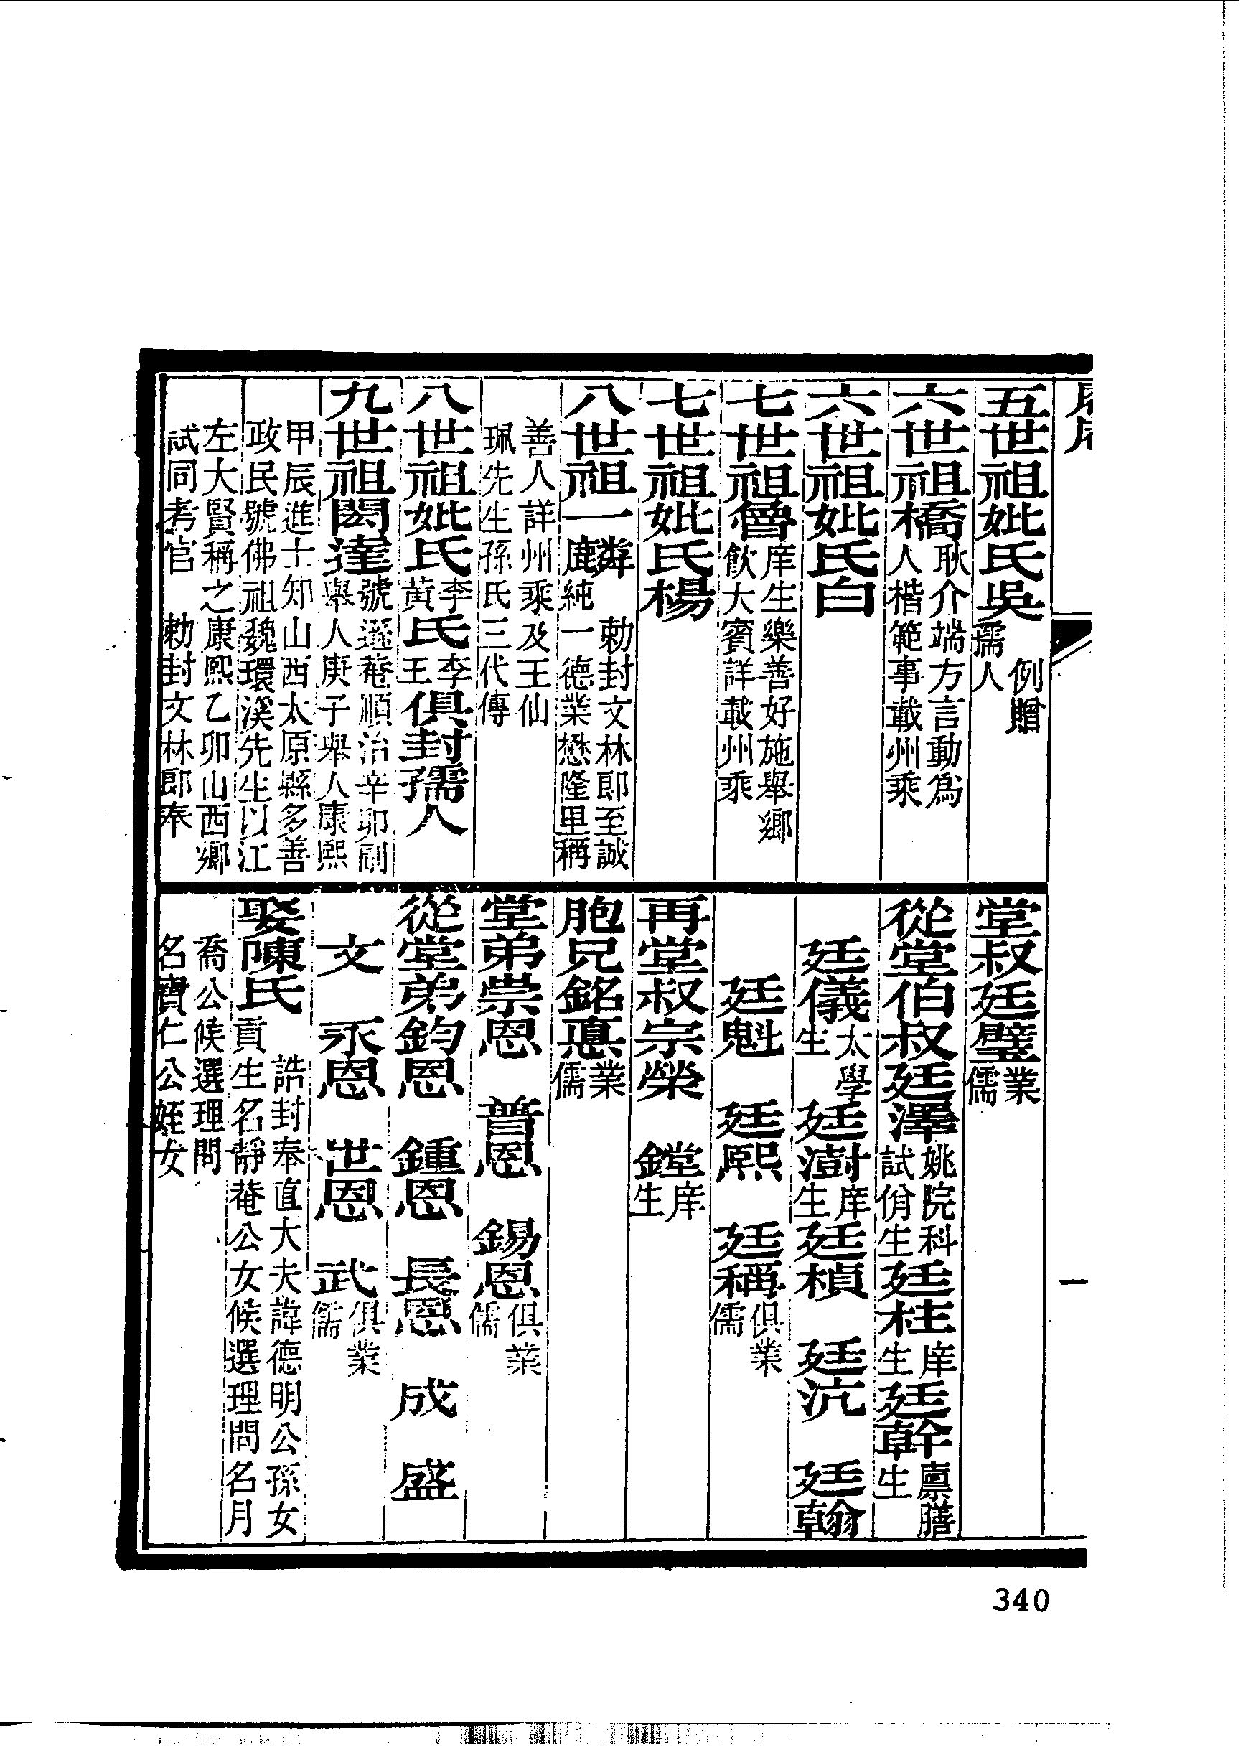 五世祖妣氏吳例贈孺人
六世祖橋耿介端方言動為人楷範事載州乘
六世祖妣氏白
七世祖魯庠生樂善好施舉鄉飲大賓詳載州乘
七世祖妣氏楊
八世祖一麟勅封文林郎至誠純一德業懋隆里稱
善人詳州乘及王仙珮先生孫氏三代傳
八世祖妣氏李黃氏李王俱封孺人
九世祖閎達號遜菴順治辛卯副舉人庚子舉人康熙
甲辰進士知山西太原縣多善政民號佛祖魏環溪先生以江
左大賢稱之康熙乙卯山西鄉試同考官 勅封文林郎奉
堂叔廷璧業儒
從堂伯叔廷澤姚院科試佾生廷柱庠生廷幹廩膳生
廷儀太學生 廷澍庠生廷楨 廷沆 廷翰
廷魁 廷熙 廷稱俱業儒
再堂叔宗榮 鏜庠生
胞兄銘悳業儒
堂弟崇恩 普恩 錫恩俱業儒
從堂弟鈞恩 鍾恩 長恩 成 盛
文 承恩 世恩 武俱業儒
娶陳氏誥封奉直大夫諱德明公孫女貢生名靜菴公女候選理問名月
喬公候選理問名寶仁公姪女
一
340